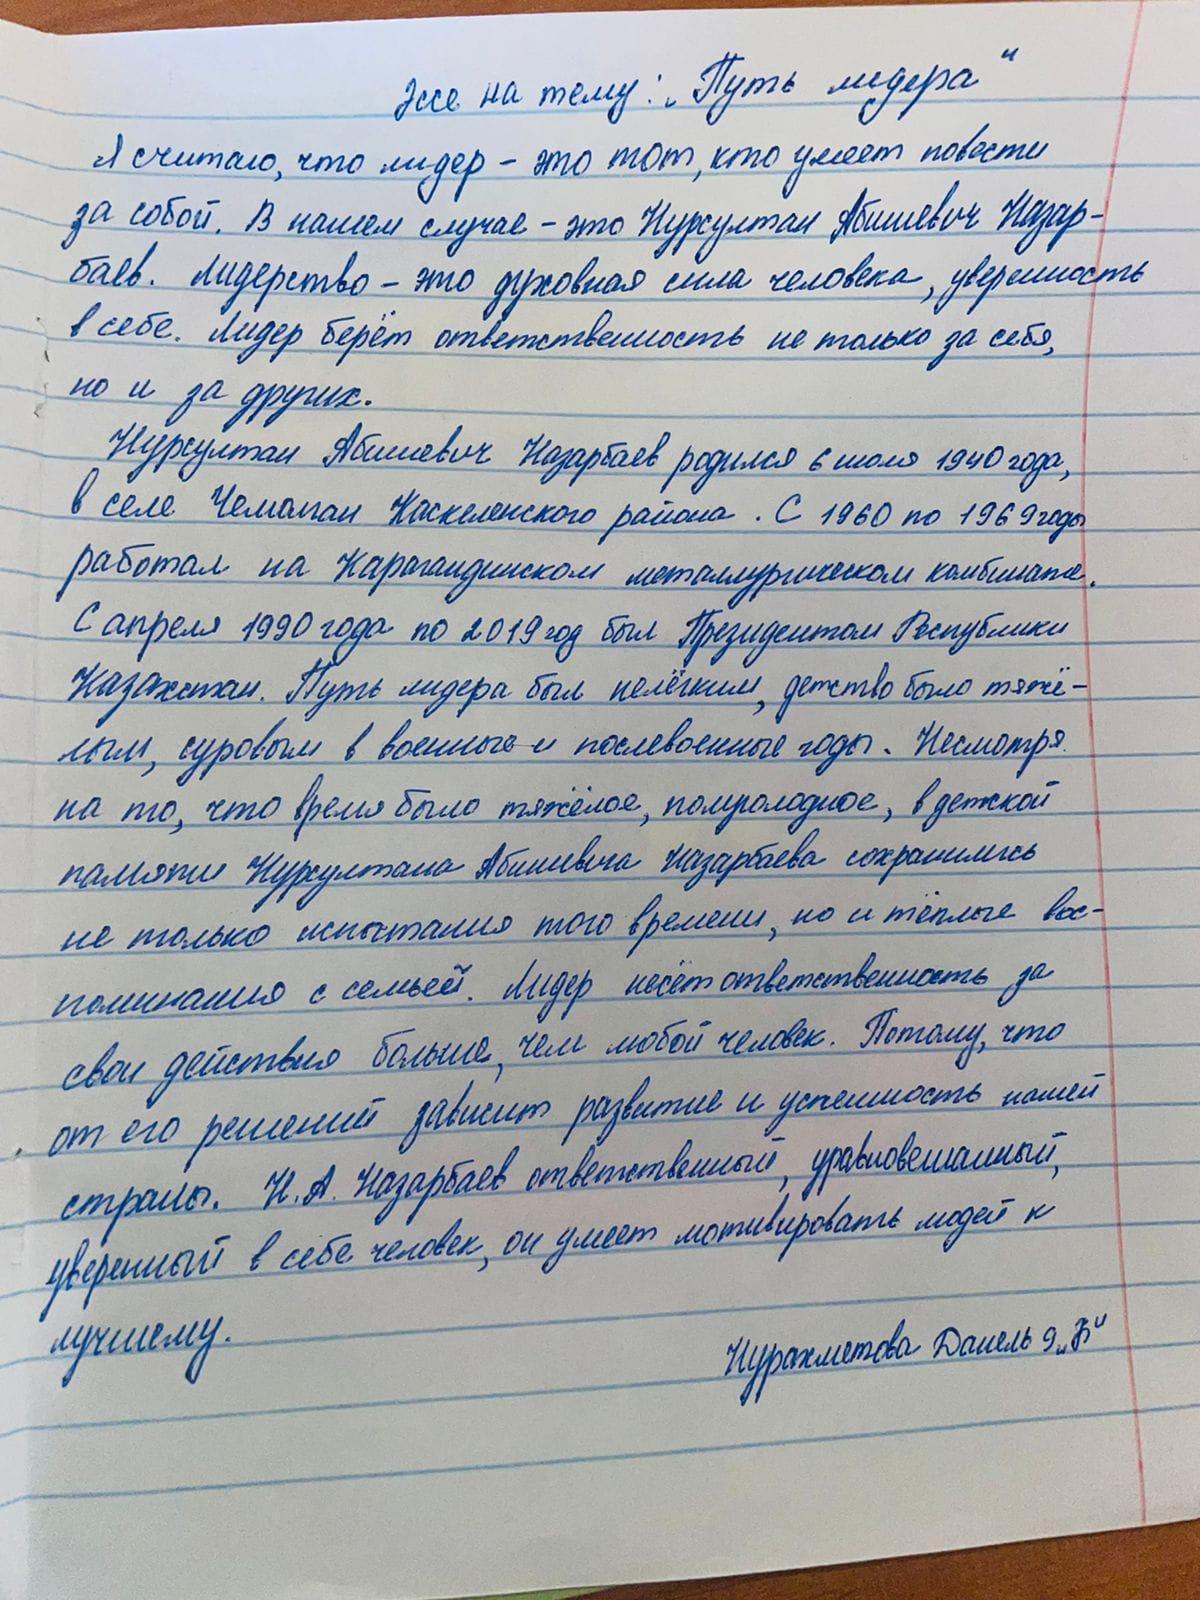 Эссе на тему: „Путь лидера"
Я считаю, что лидер – это тот, кто умеет повести
за собой. В нашем случае – это Нурсултан Абишевич Назар-
баев. Лидерство – это духовная сила человека, уверенность
в себе. Лидер берёт ответственность не только за себя,
но и за других.
Нурсултан Абишевич Назарбаев родился 6 июля 1940 года,
в селе Чемолган Каскеленского района. С 1960 по 1969 годы
работал на Карагандинском металлургическом комбинате.
С апреля 1990 года по 2019 год был Президентом Республики
Казахстан. Путь лидера был нелёгким, детство было тяжё-
лым, суровым в военные и послевоенные годы. Несмотря
на то, что время было тяжёлое, полуголодное, в детской
памяти Нурсултана Абишевича Назарбаева сохранились
не только испытания того времени, но и тёплые вос-
поминания с семьёй. Лидер несёт ответственность за
свои действия больше, чем любой человек. Потому, что
от его решений зависит развитие и успешность нашей
страны. Н.А. Назарбаев ответственный, уравновешанный,
уверенный в себе человек, он умеет мотивировать людей к
лучшему.
Нурахметова Данель 9 „Б"